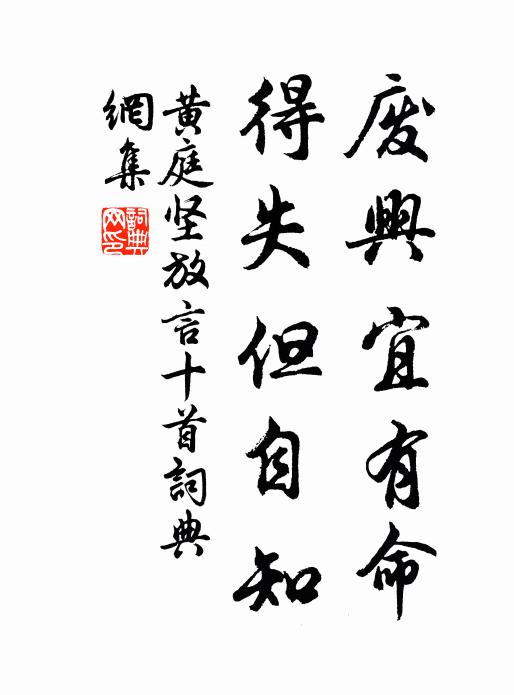 废興宜有命
得失但自知
黄庭坚放言十首詞典
網集
詞典
网印